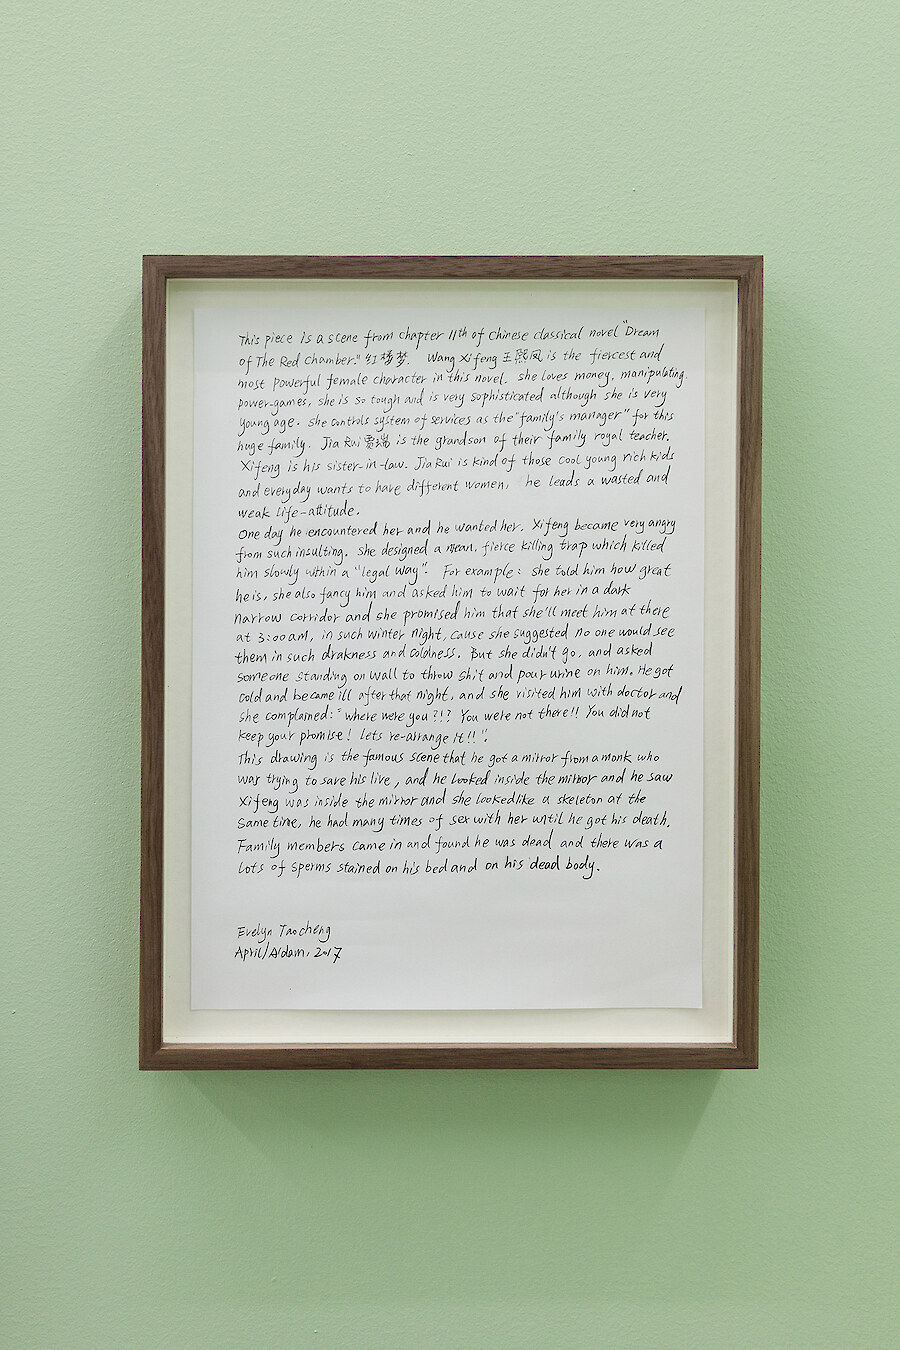 This piece is a scene from chapter 11th of Chinese classical novel "Dream
of The Red Chamber." 红楼梦. Wang Xifeng 王熙凤 is the fiercest and
most powerful female character in this novel. She loves money, manipulating.
power-games, she is so tough and is very sophisticated although she is very
young age. She controls system of services as the "family's manager" for this
huge family. Jia Rui 贾瑞 is the grandson of their family royal teacher.
Xifeng is his sister-in-law. Jia Rui is kind of those cool young rich kids
and everyday wants to have different women, he leads a wasted and
weak life-attitude.
One day he encountered her and he wanted her. Xifeng became very angry
from such insulting. She designed a mean, fierce killing trap which killed
him slowly within a "legal way". For example: she told him how great
he is, she also fancy him and asked him to wait for her in a dark
narrow corridor and she promised him that she'll meet him at there
at 3:00 am, in such winter night, cause she suggested no one would see
them in such drakness and coldness. But she didn't go, and asked
someone standing on wall to throw shit and pour urine on him. He got
cold and became ill after that night, and she visited him with doctor and
she complained: "where were you?!? You were not there!! You did not
keep your promise! Lets re-arrange it!!".
This drawing is the famous scene that he got a mirror from a monk who
was trying to save his live, and he looked inside the mirror and he saw
Xifeng was inside the mirror and she looked like a skeleton at the
same time, he had many times of sex with her until he got his death.
Family members came in and found he was dead and there was a
lots of sperms stained on his bed and on his dead body.
Evelyn Taocheng
April/A'dam, 2017